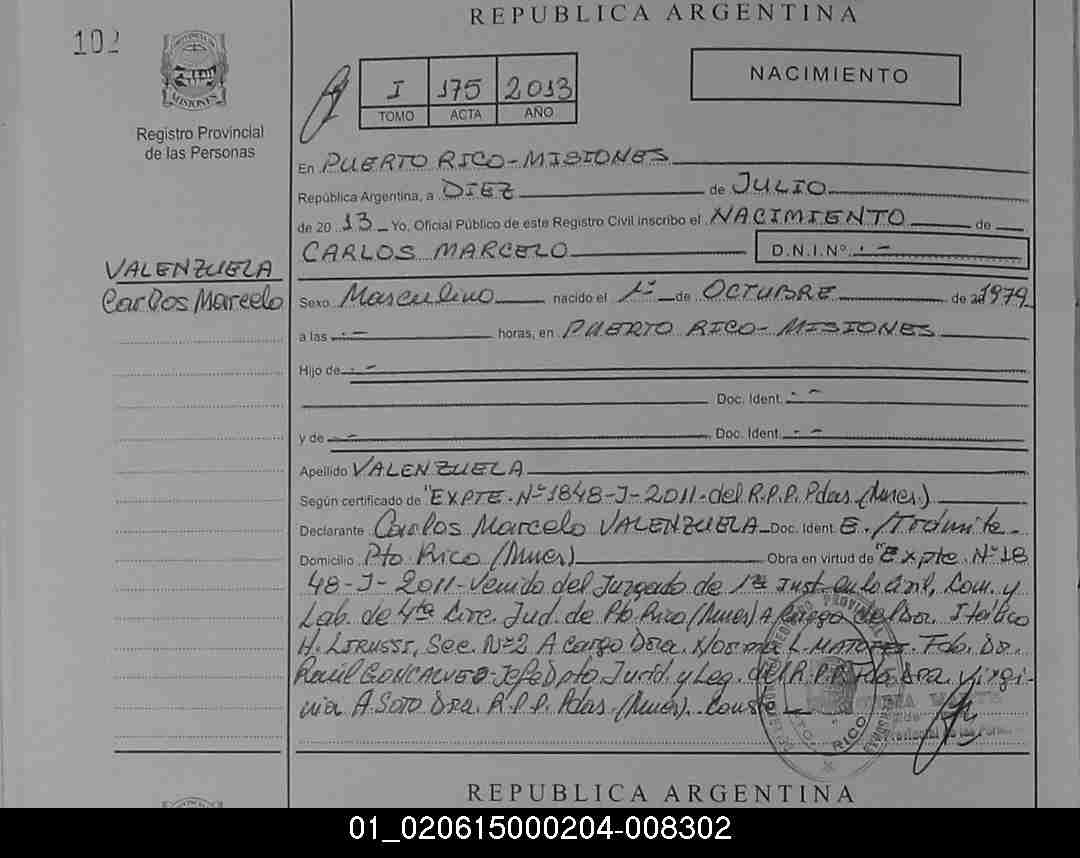 REPUBLICA ARGENTINA
102
PROVINCIA DE
MISIONES
Registro Provincial
de las Personas
I 175 2013
TOMO ACTA AÑO
NACIMIENTO
En PUERTO RICO-MISIONES
República Argentina, a DIEZ de JULIO
de 20 13 Yo, Oficial Público de este Registro Civil inscribo el NACIMIENTO de
CARLOS MARCELO D.N.I.Nº . -
VALENZUELA
Carlos Marcelo
Sexo Masculino nacido el 1º de OCTUBRE de 1979
a las . - horas, en PUERTO RICO - MISIONES
Hijo de . -
Doc. Ident. . -
y de . - Doc. Ident. . -
Apellido VALENZUELA
Según certificado de "EXPTE. Nº 1848-J-2011-del R.P.P. Pdas. (Mnes.)
Declarante Carlos Marcelo VALENZUELA Doc. Ident. E./Trámite.
Domicilio Pto Rico (Mnes) Obra en virtud de "Expte. Nº 18
48-J-2011-Venido del Juzgado de 1ra Inst. en lo Civil, Com. y
Lab. de 4ta Circ. Jud. de Pto Rico (Mnes) A Cargo del Dr.
H. Sec. Nº 2 A cargo Dra. Norma L. Fdo. Dr.
Raúl Jefe Dpto. Juríd. y Leg. del R.P.P. Fdo. Dra. Virgi-
nia A. SOTO Dra. R.P.P. Pdas. (Mnes). Conste
RICO
REPUBLICA ARGENTINA
01_020615000204-008302